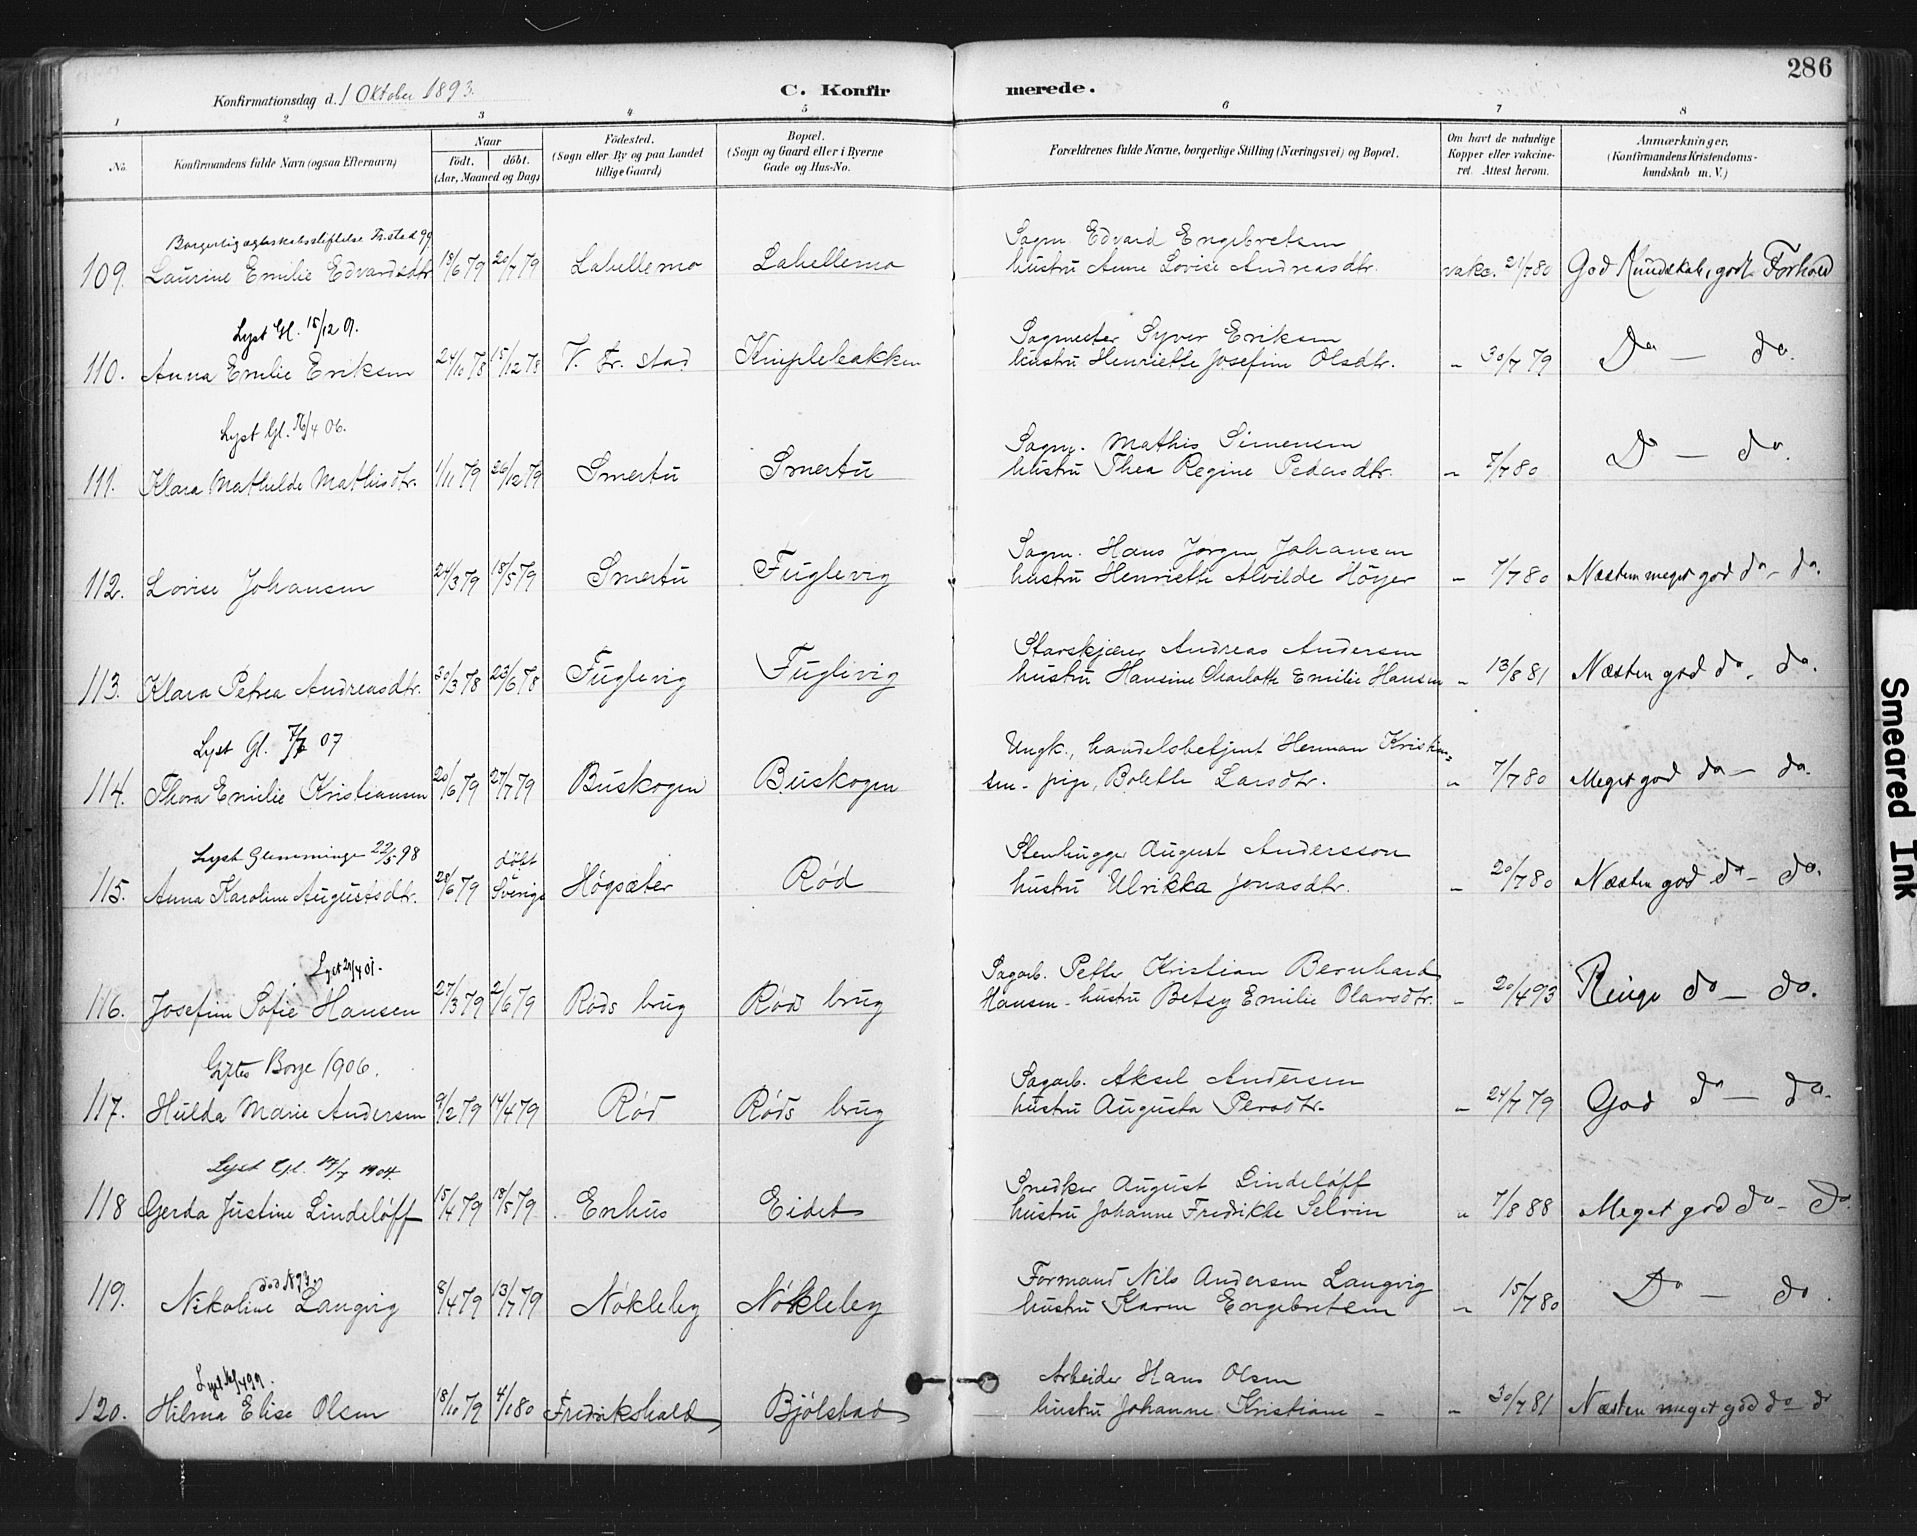 286
Konfirmationsdag d. 1 Oktober 1893.
C. Konfirmerede.
1 2 3 4 5 6 7 8
No. Konfirmandens fulde Navn (ogsaa Efternavn) Naar Födt. döbt. (Aar, Maaned og Dag) Födested. (Sogn eller By og paa Landet tillige Gaard) Bopæl. (Sogn og Gaard eller i Byerne Gade og Hus-No. Forældrenes fulde Navne, borgerlige Stilling (Næringsvei) og Bopæl. Om havt de naturlige Kopper eller vakcineret. Attest herom. Anmærkninger. (Konfirmandens Kristendomskundskab m. V.)
Borgerlig ægteskabsstiftelse Fr.stad 99
Sagm. Edvard Engebretsen
109. Laurine Emilie Edvardsdtr 18/6 79 20/7 79 Lahellemo Lahellemo hustru Anne Lovise Andreasdtr. vakc. 21/7 80 God Kundskab, godt Forhold
Lyst Gl. 15/12 01.
Sagmester Syver Eriksen
110. Anna Emilie Eriksen 24/10 78 15/12 78 V. Fr. stad Kniplebakken hustru Henriette Josefine Olsdtr. " 30/7 79 Do — do.
Lyst Gl. 16/4 06.
Sagm. Mathis Simensen
111. Klara Mathilde Mathisdtr. 1/11 79 26/12 79 Smertu Smertu hustru Thea Regine Pedersdtr. " 7/7 80 Do — do.
Sagm. Hans Jørgen Johansen
112. Lovise Johansen 24/3 79 18/5 79 Smertu Fuglevig hustru Henriette Alvilde Höyer " 7/7 80 Næsten meget god do - do.
Stavskjærer Andreas Andersen
113. Klara Petrea Andreasdtr. 30/3 78 23/6 78 Fuglevig Fuglevig hustru Hansine Charlotte Emilie Hansen " 13/8 81 Næsten god do - do.
Lyst Gl. 07
Ungk., handelsbetjent Herman Kristian=
114. Thora Emilie Kristiansen 20/6 79 27/7 79 Buskogen Buskogen sen - pige, Bolette Larsdtr. " 7/7 80 Meget god do — do.
Lyst Glemminge 22/5 98
döbt Stenhugger August Andersson
115. Anna Karoline Augustsdtr. 28/6 79 Sverige Høgsæter Rød hustru Ulrikka Jonasdtr. " 20/7 80 Næsten god do - do.
Lyst 21/4 01.
Sagarb. Petter Kristian Bernhard
116. Josefine Sofie Hansen 27/3 79 2/6 79 Røds brug Røds brug Hansen - hustru Betsy Emilie Olavsdtr. " 20/4 93 Ringe do — do.
Giftes Borge 1906.
Sagarb. Aksel Andersen
117. Hulda Marie Andersen 9/2 79 14/4 79 Rød Røds brug hustru Augusta Persdtr. " 24/7 79 God do — do.
Lyst Gl. 17/7 1904.
Snedker August Lindeløff
118 Gerda Justine Lindeløff 15/4 79 18/5 79 Enhus Eidet hustru Johanne Fredrikke Selvin " 7/8 88 Meget god do - do.
död 1893
Formand Nils Andersen Langvig
119. Nikoline Langvig 8/4 79 13/7 79 Nøkleby Nøkleby hustru Karen Engebretsen " 15/7 80 Do — do.
Lyst
Arbeider Hans Olsen
120. Hilma Elise Olsen 18/10 79 4/1 80 Fredrikshald Bjølstad hustru Johanne Kristiane - " 30/7 81 Næsten meget god do - do
Smeared Ink